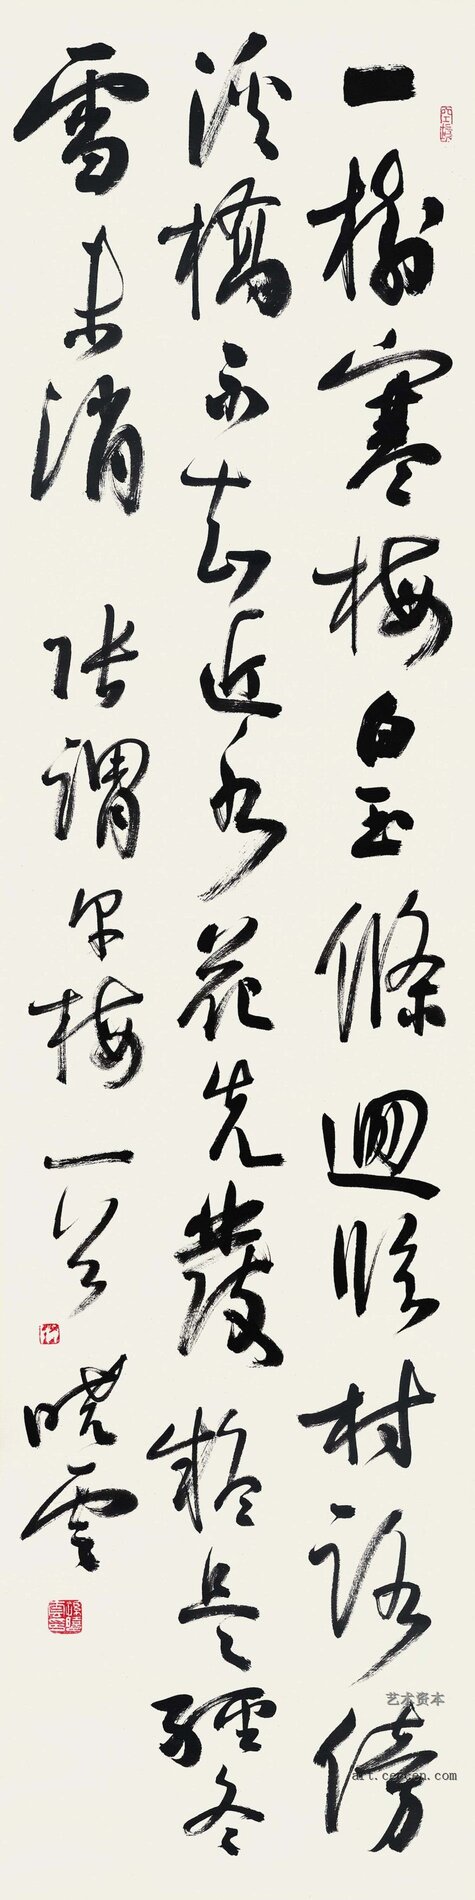 一樹寒梅白玉條迴臨村路傍
溪橋不知近水花先發疑是經冬
雪未消 張謂早梅一首
曉雲
艺术资本